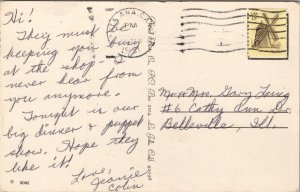 Hi!
They must be
keeping you busy
at the shop - I
never hear from
you anymore.
Tonight is our
big dinner & puppet
show. Hope they
like it!
Love,
Jeanie
Colin
ANA CA
PM
Mr & Mrs. Gary Long
#6 Cathy Ann Dr.
Belleville, Ill.